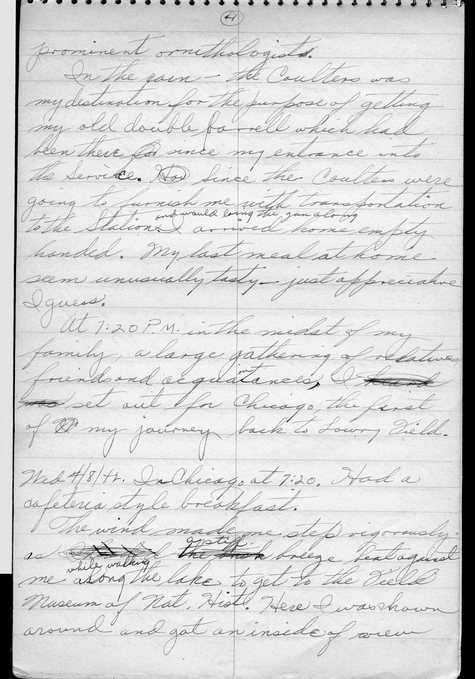 4
prominent ornithologists.
In the rain - the Coulters was
my destination for the purpose of getting
my old double barrell which had
been there since my entrance into
the service. Since the Coulters were
going to furnish me with transportation
and would bring the gun along
to the Station I arrived home empty
handed. My last meal at home
seem unusually tasty - just appreciative
I guess.
At 7:20 P.M. in the midst of my
family, a large gathering of relatives
friends and acquaintances, I
set out for Chicago, the first
of my journey back to Lowry Field.
Wed 4/8/42. In Chicago at 7:20. Had a
cafeteria style breakfast.
The wind made me step vigorously
as a stiff breeze beat against
while walking
me along the lake to get to the Field
Museum of Nat. Hist. Here I was shown
around and got an inside of view